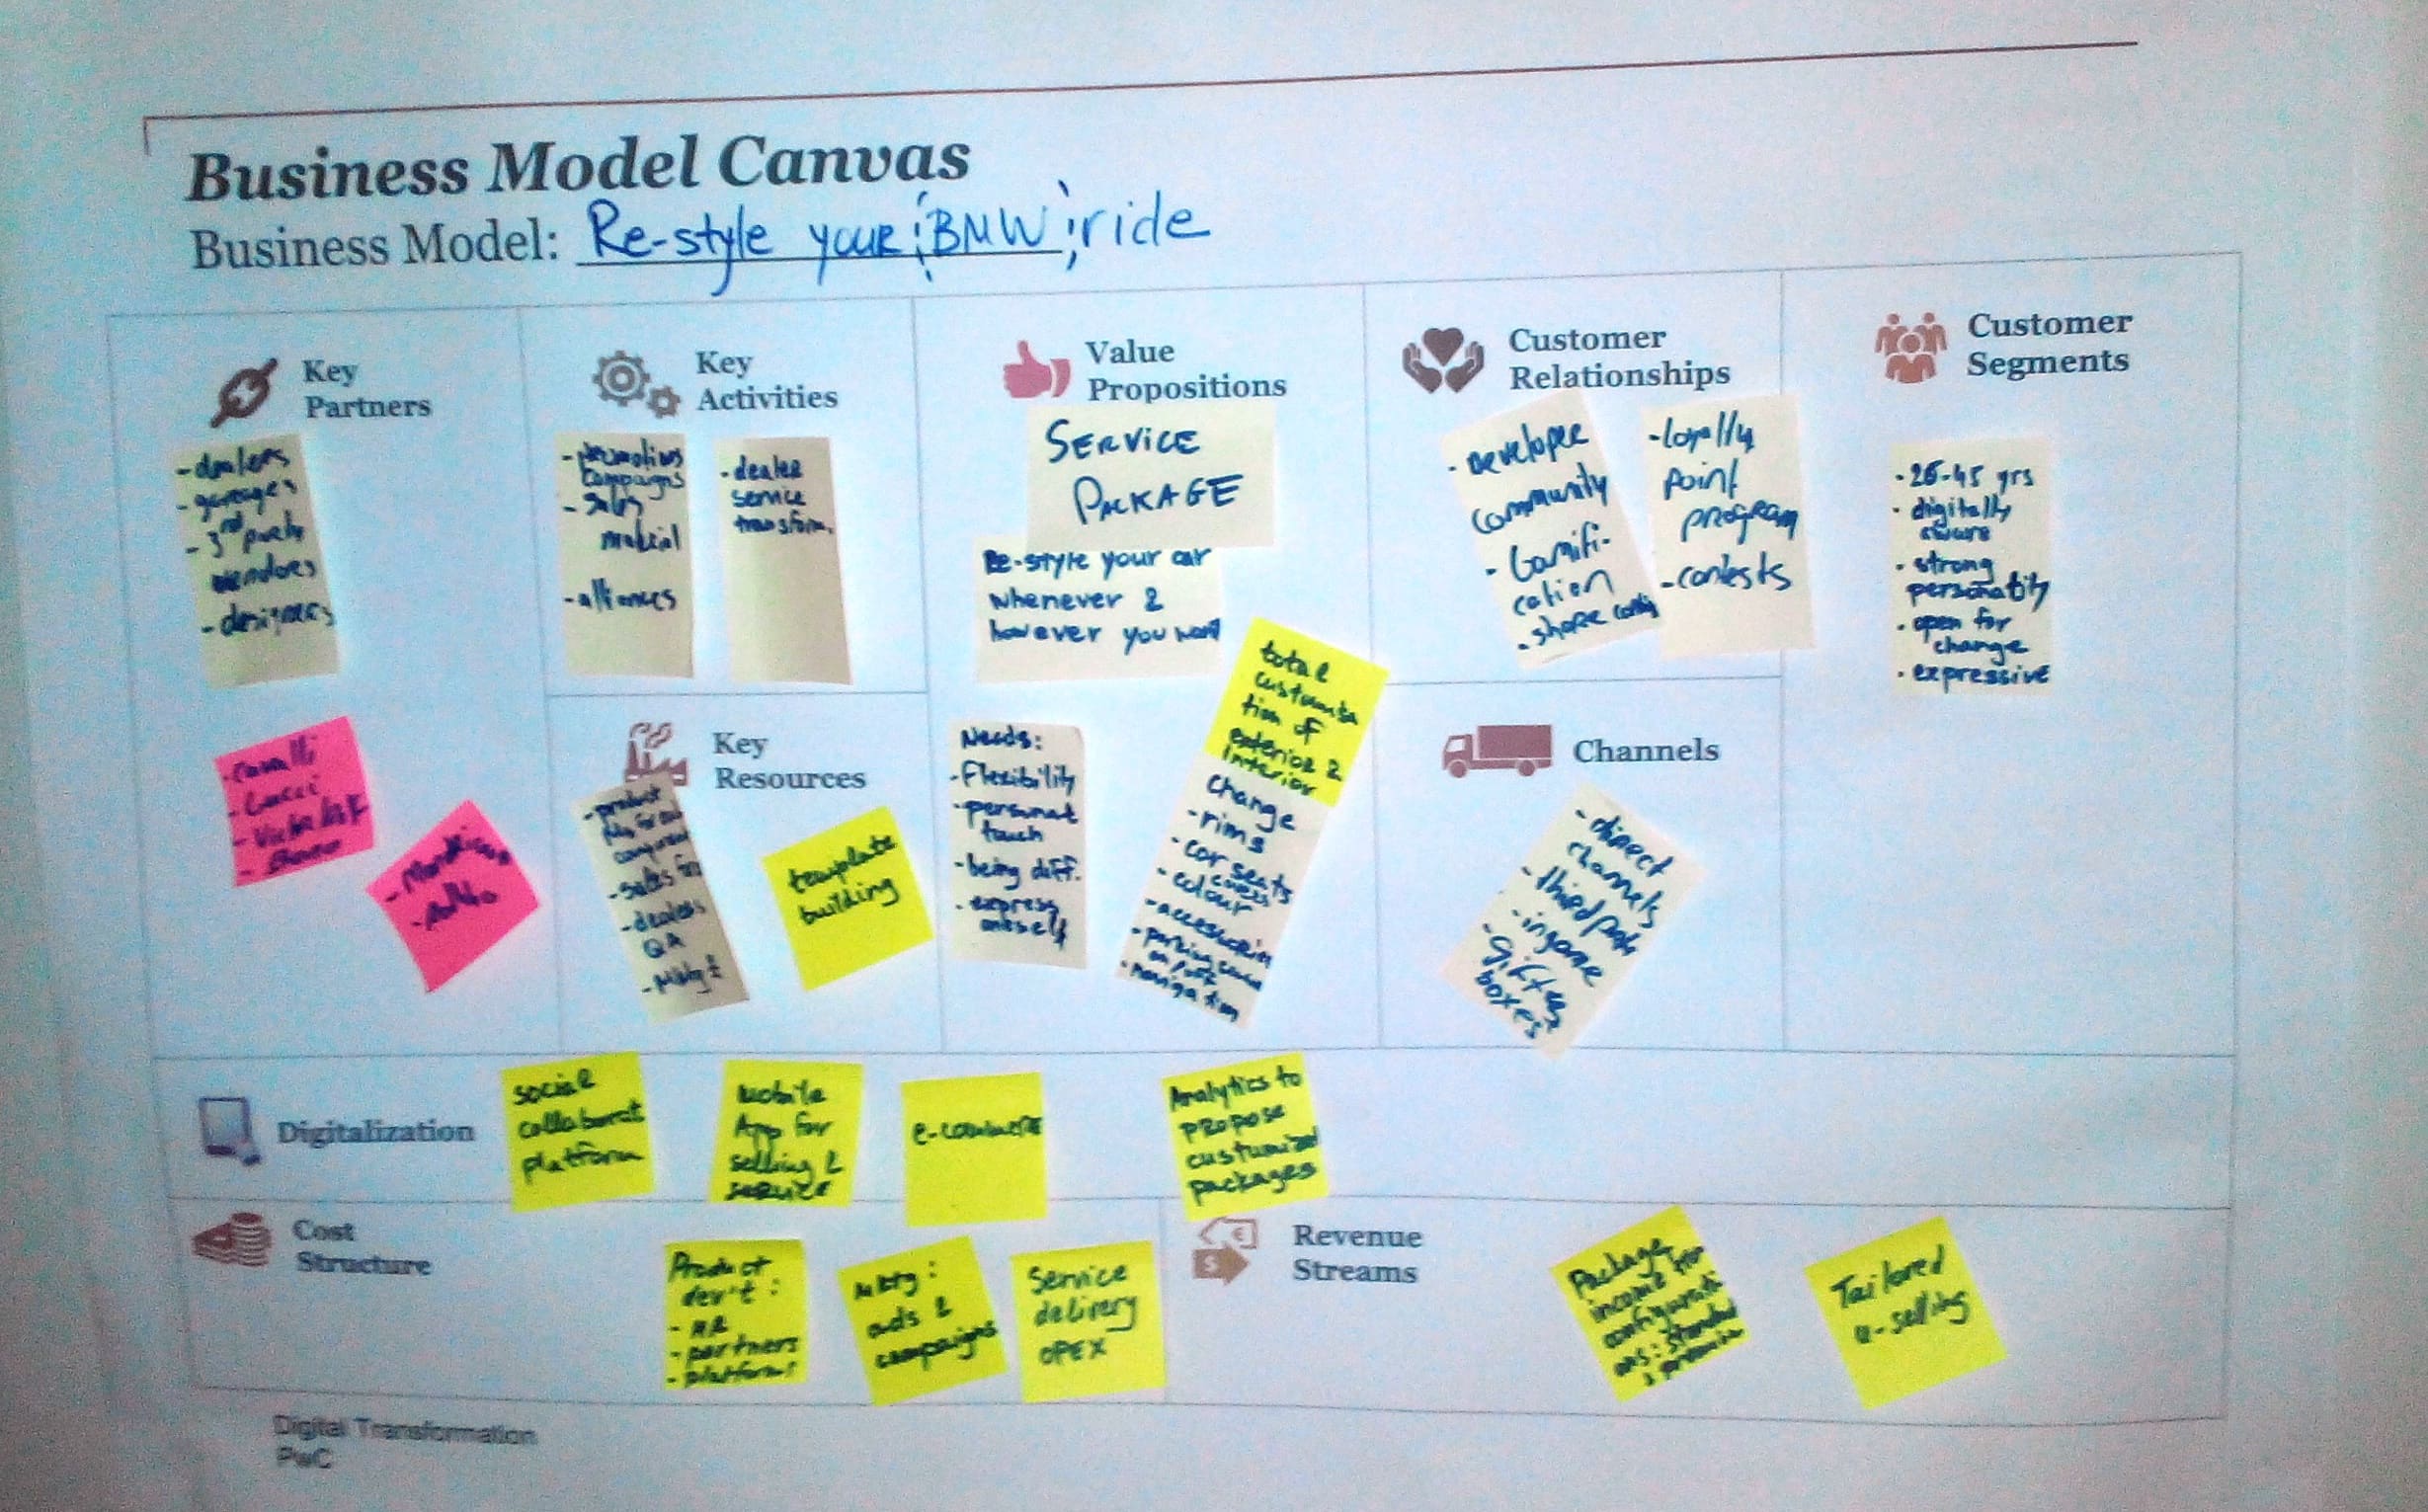 Business Model Canvas
Business Model: Re-style your 'BMW' ride
Key
Partners
- dealers
- garages
- 3rd party
vendors
- designers
- Cavalli
- Gucci
Key
Activities
- promotions
campaigns
- sales
material
- alliances
- dealer
service
transform.
Key
Resources
- product
- dealers
QA
- Mktg
template
building
Value
Propositions
SERVICE
PACKAGE
Re-style your car
whenever &
however you want
Needs:
- Flexibility
- personal
touch
- being diff.
- express
oneself
total
customiza
tion of
exterior &
interior
Change
- rims
- car seats
- colour
- accessories
navigation
Customer
Relationships
- Developer
community
- Gamifi-
cation
- share
- loyalty
point
program
- contests
Channels
- direct
channels
- third
- ingame
- gift
boxes
Customer
Segments
- 26-45 yrs
- digitally
aware
- strong
personality
- open for
change
- expressive
Digitalization
social
collaborat
platform
Mobile
App for
selling &
service
e-commerce
Analytics to
propose
custumized
packages
Cost
Structure
Product
dev't:
- HR
- partners
- platforms
Mktg:
ads &
campaigns
Service
delivery
OPEX
Revenue
Streams
Package
income
Tailored
e-selling
Digital Transformation
PwC